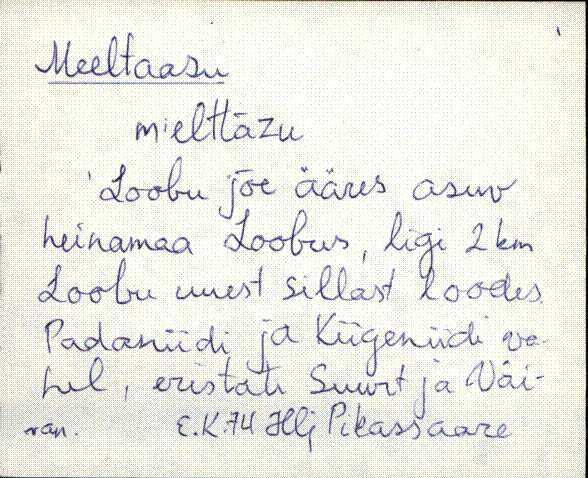 Meeltaasu
mielttāzu
'Loobu jõe ääres asuv
heinamaa Loobus, ligi 2 km
Loobu uuest sillast loodes.
Padaniidi ja Kiigeniidi va-
hel, eristati Suurt ja Väi-
E.K. 74 Hlj Pikassaare